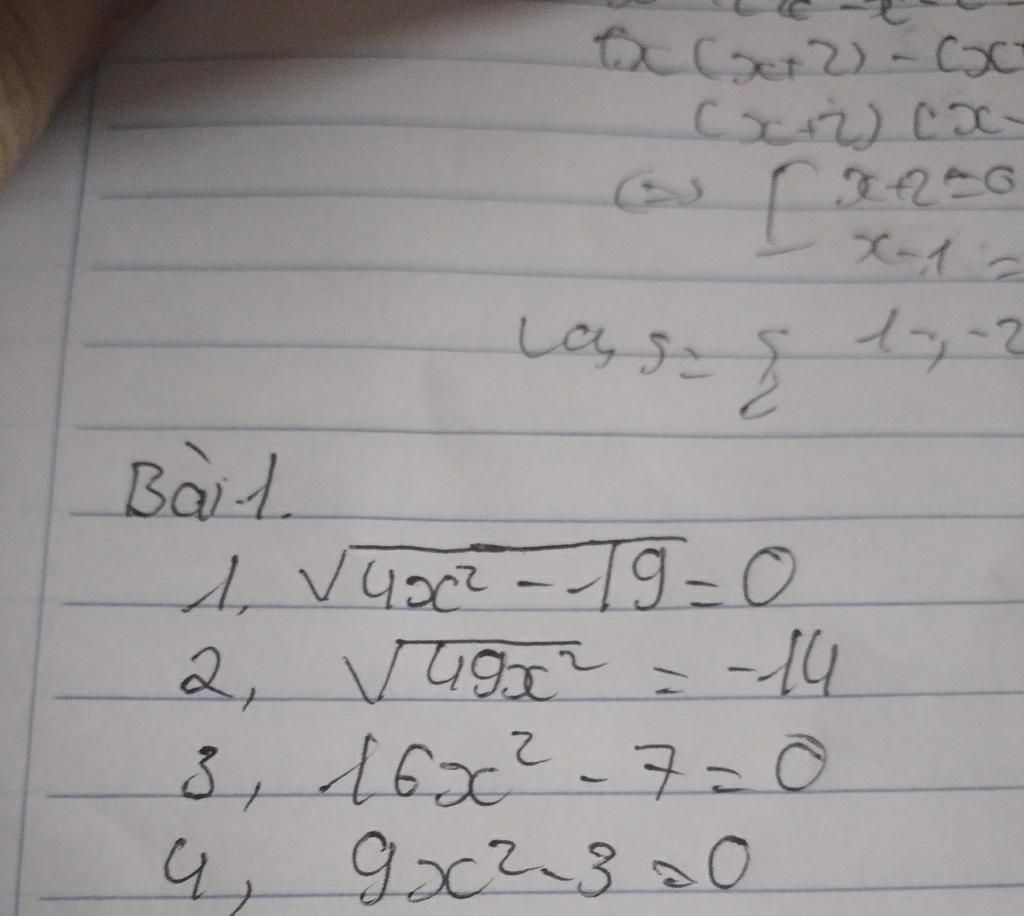 x(x+2)-(x
(x+2)(x-
(=) [ x+2=0
x-1=
Bài 1.
1, √4x² - 19 = 0
2, √49x² = -14
3, 16x² - 7 = 0
4, 9x² - 3 = 0